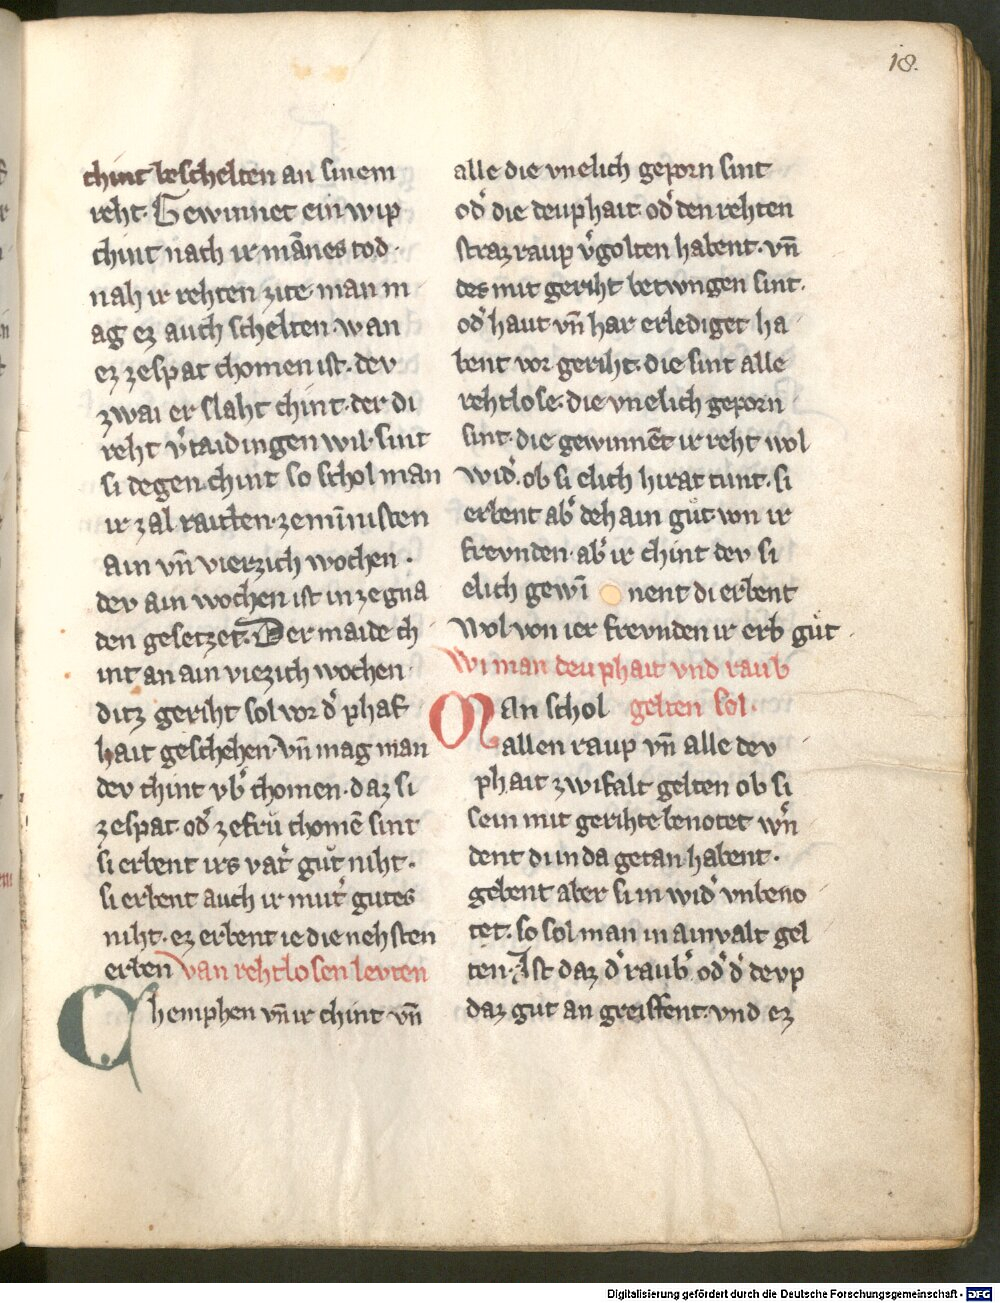 18.
chint beschelten an sinem
reht. Gewinnet ein wip
chint nach ir mānes tod.
nah ir rehten zite. man m
ag ez auch schelten. wan
ez zespat chomen ist. dev
zwai er slaht chint. der di
reht v͛taidingen wil. sint
si degen chint so schol man
ir zal raiten. zem īnisten
ain vn̄ vierzich wochen.
dev ain wochen ist in zegna
den gesetzet. Der maide ch
int an ain viezich wochen.
ditz geriht sol vor d͛ phaf
hait geschehen. vn̄ mag man
dev chint vb͛ chomen. daz si
zespat. od͛ zefrů chomē sint
si erbent irs vat͛ gůt niht.
si erbent auch ir mut͛ gutes
niht. ez erbent ie die nehsten
erben van rehtlosen levten
Chemphen vn̄ ir chint vn̄
alle die vnelich geporn sint
od͛ die deuphait. od͛ den rehten
straz raup v͛golten habent. vn̄
des mit geriht betwngen sint.
od͛ haut vn̄ har erlediget ha
bent vor geriht. die sint alle
rehtlose. die vnelich geporn
sint. die gewinnēt ir reht wol
wid͛. ob si elich hirat tunt. si
erbent ab͛ dehain gůt von ir
frevnden. ab͛ ir chint dev si
elich gewī nent di erbent
wol von ier frevnden ir erb gůt
Wi man deuphait vnd raub
gelten sol.
Man schol
allen raup vn̄ alle dev
phait zwifalt gelten ob si
sein mit gerihte benotet w͛n
dent di in da getan habent.
gebent aber si in wid͛ vnbeno
tet. so sol man in ainvalt gel
ten. Ist daz d͛ raub͛ od͛ d͛ devp
daz gut an greiffent. vnd ez
Digitalisierung gefördert durch die Deutsche Forschungsgemeinschaft - DFG